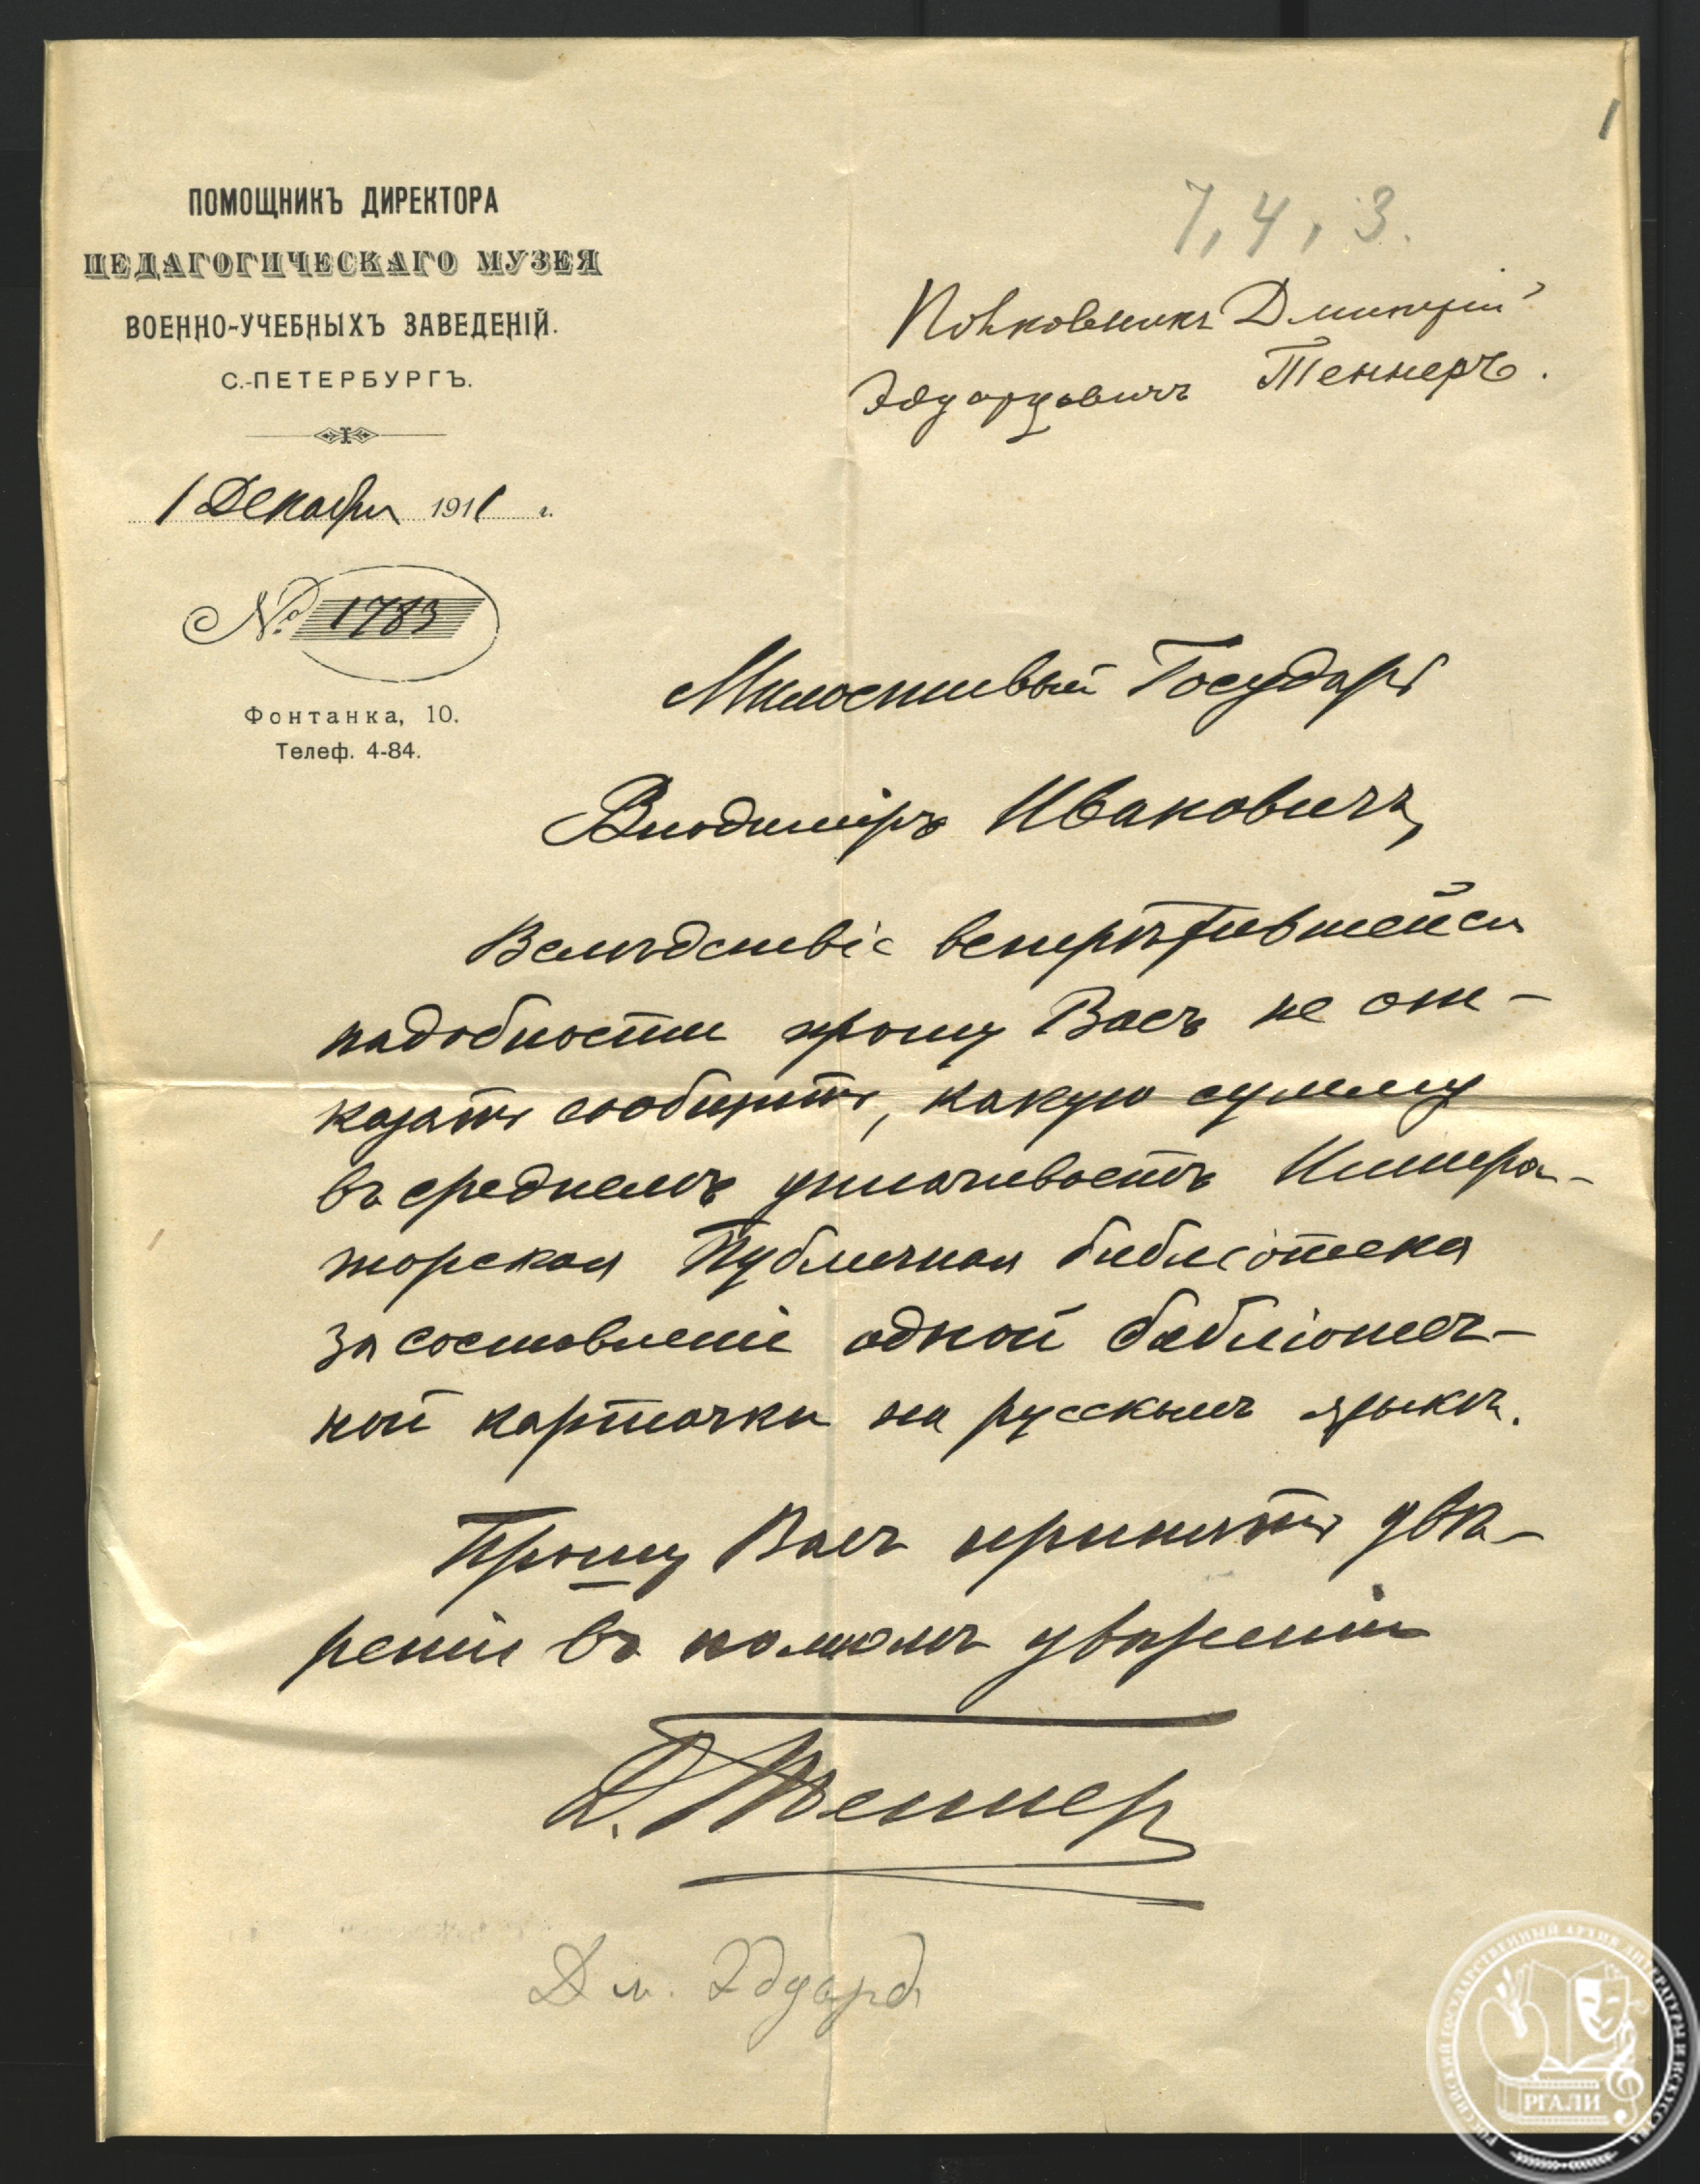 1
ПОМОЩНИКЪ ДИРЕКТОРА
ПЕДАГОГИЧЕСКАГО МУЗЕЯ
ВОЕННО-УЧЕБНЫХЪ ЗАВЕДЕНІЙ.
С.-ПЕТЕРБУРГЪ.
1 Декабря 1911 г.
№ 1783
Фонтанка, 10.
Телеф. 4-84.
7, 4, 3.
Полковникъ Дмитрій
Эдуардовичъ Теннеръ.
Милостивый Государь
Владиміръ Ивановичъ,
Вслѣдствіе встрѣтившейся
надобности прошу Васъ не от-
казать сообщить, какую сумму
въ среднемъ уплачиваетъ Импера-
торская Публичная библіотека
за составленіе одной библіотеч-
ной карточки на русскомъ языкѣ.
Прошу Васъ принять увѣ-
реніе въ полномъ уваженіи
Д. Теннеръ
Дм. Эдуард
РОССИЙСКИЙ ГОСУДАРСТВЕННЫЙ АРХИВ ЛИТЕРАТУРЫ И ИСКУССТВА
РГАЛИ